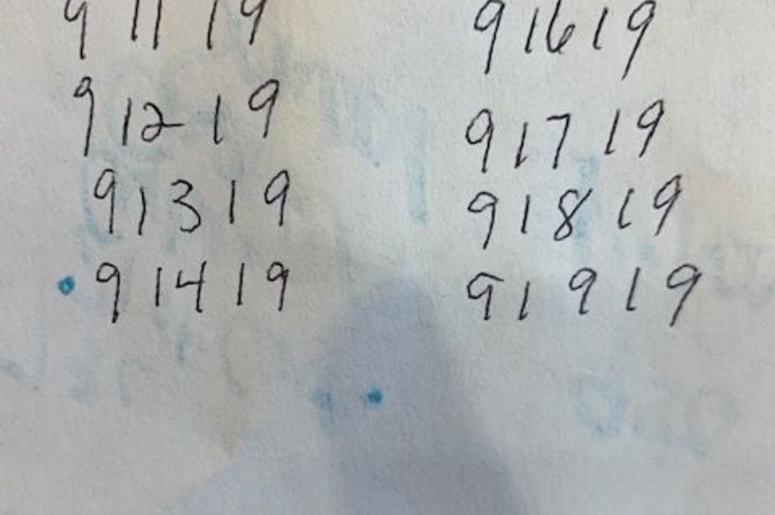 9 11 19
9 12 19
9 13 19
9 14 19
9 16 19
9 17 19
9 18 19
9 19 19